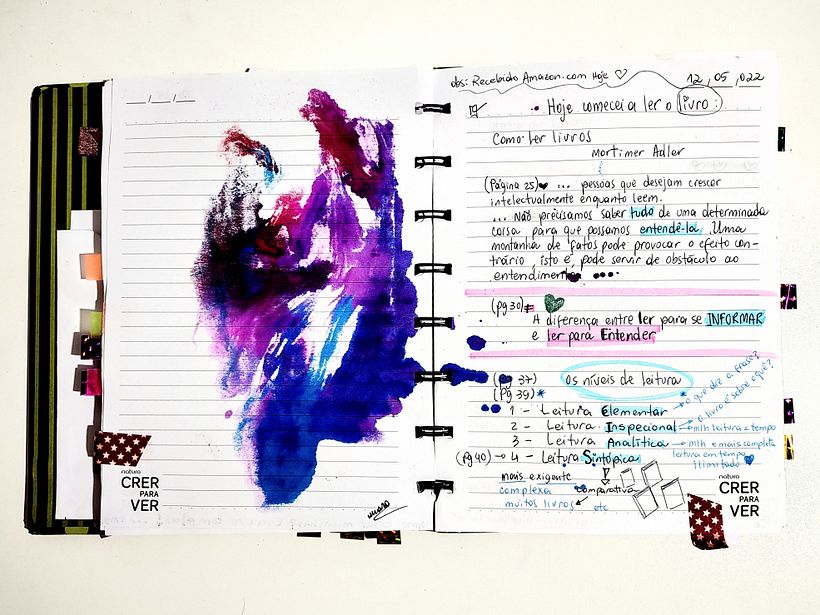 __/__/__
natura
CRER
PARA
VER
obs: Recebido Amazon.com Hoje ♡
12, 05, 022
Hoje comecei a ler o livro:
Como ler livros
Mortimer Adler
(Página 25) ♥ ... pessoas que desejam crescer
intelectualmente enquanto leem.
... Não precisamos saber tudo de uma determinada
coisa para que possamos entendê-la. Uma
montanha de fatos pode provocar o efeito con-
trário, isto é, pode servir de obstáculo ao
entendimento
(pg 30)
A diferença entre ler para se INFORMAR
e ler para Entender
(pg 37) os níveis de leitura
(pg 39)*
1 - Leitura Elementar → o que diz a frase?
2 - Leitura Inspecional → o livro é sobre o quê?
mlh leitura e tempo
3 - Leitura Analítica → mlh e mais completa
leitura em tempo
ilimitado
(pg 40) → 4 - Leitura Sintópica
mais exigente
complexa
comparativa
muitos livros
etc
natura
CRER
PARA
VER